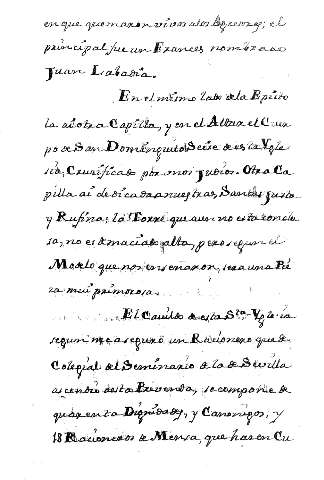 en que quemaron vivos a los Agresores; el
principal fue un Frances nombrado
Juan Labadia.
En el mismo lado de la Episto
la ai otra Capilla, y en el Altar el Cuer
po de San Dominguito Seise de esta Ygle
sia, Crucificado por unos Judios. Otra Ca
pilla ai dedicada a nuestras Santas Justa
y Rufina: la Torre que aun no esta conclu
sa, no es demaciado alta, pero segun el
Modelo que nos enseñaron, sera una Pie
za mui primorosa.
El Cavildo de esta Sta. Yglesia
segun me aseguró un Racionero que de
Colegial del Seminario de la de Sevilla
ascendio a esta Prevenda, se compone de
quarenta Dignidades, y Canonigos, y
18 Racioneros de Mensa, que hacen Cu